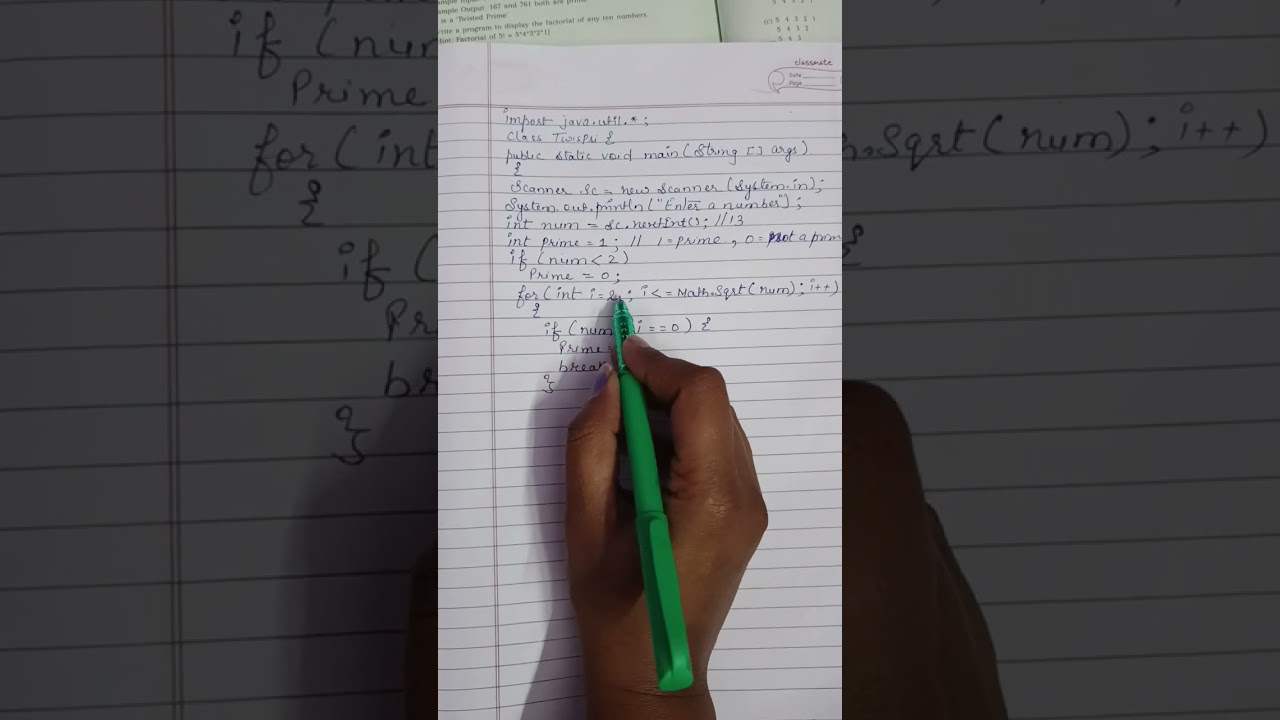 ample Output: 167 and 761 both are prime
is a 'Twisted Prime'.
rite a program to display the factorial of any ten numbers.
Hint: Factorial of 5! = 5*4*3*2*1]
5 4 3 2 1
(c) 5 4 3 2 1
5 4 3 2
5 4 3
classmate
Date
Page
import java.util.*;
class TwisPri {
public static void main(String [] args)
{
Scanner Sc = new Scanner (System.in);
System.out.println("Enter a number");
int num = Sc.nextInt(); //13
int prime = 1; // 1=prime, 0= not a prim
if (num < 2)
Prime = 0;
for(int i=2; i<=Math.Sqrt(num); i++)
{
if (num i == 0) {
Prime =
break
}
if (num
Prime
for(int
{
if (
Pr
br
}
.Sqrt(num); i++)
{